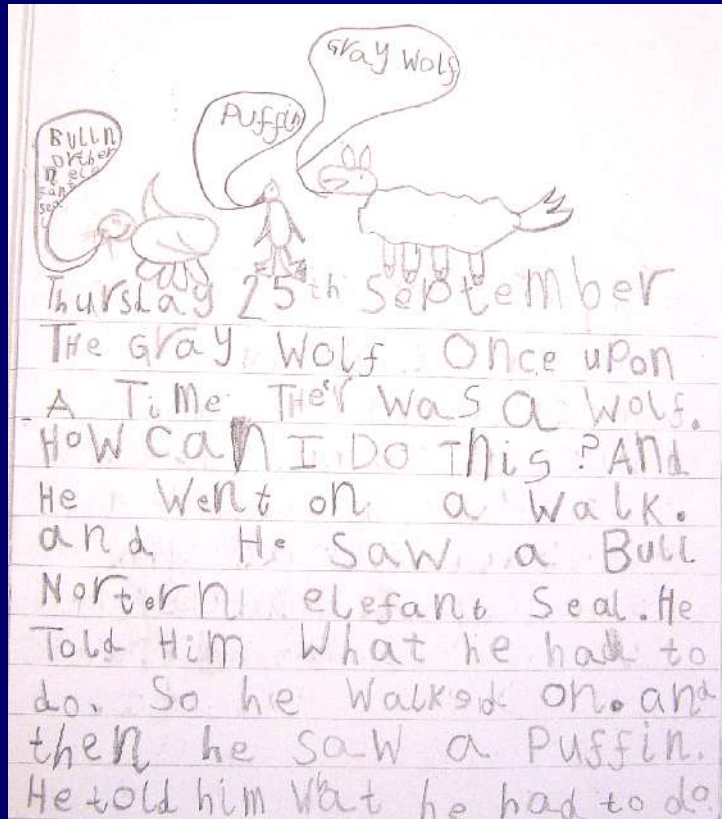 Gray Wolf
Puffin
BULL N
Orther
n ele
fant
sea
Thursday 25th September
THe Gray Wolf Once upon
A TiMe THer was a Wolf.
HoW can I DO This? And
He Went on a Walk.
and He Saw a Bull
Nortern elefant Seal. He
Told Him What he had to
do. So he Walked on. and
then he saw a Puffin.
He told him What he had to do.